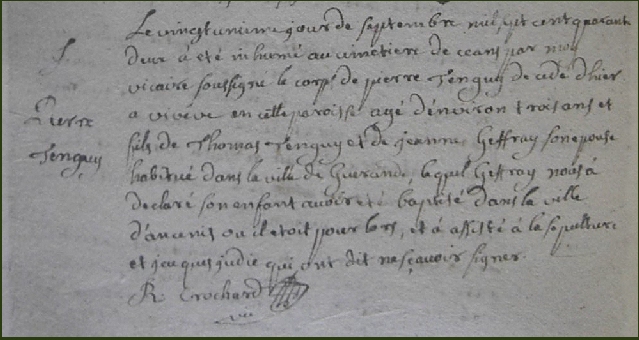 Le vingt unieme jour de septembre mil sept cent quarant
deux a été inhumé au cimetiere de ceans par moy
S.
vicaire soussigné le corps de pierre Tenguy decede d'hier
Pierre
Tenguy
a en cette paroisse agé d'environ trois ans et
fils de Thomas Tenguy et de jeanne Geffray son epouse
habitué dans la ville de Guerande, lequel Geffray nous a
declaré son enfant avoir eté baptisé dans la ville
d'ancenis ou il etoit pour lors, et a assisté à la sepulture
et jacques judic qui ont dit ne sçavoir signer.
R. Crochard
vic